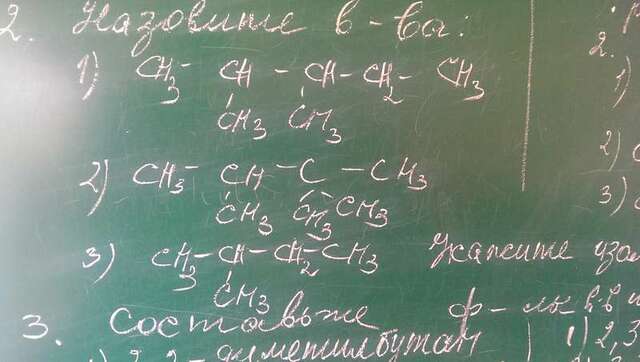 2. Назовите в-ва:
1) CH3 - CH - CH - CH2 - CH3
CH3 CH3
2) CH3 - CH - C - CH3
CH3 CH3 CH3
3) CH3 - CH - CH2 - CH3 Укажите
CH3
3. Составьте ф-лы в-в
диметилбутан 1) 2,3
2.
1)
2)
3)